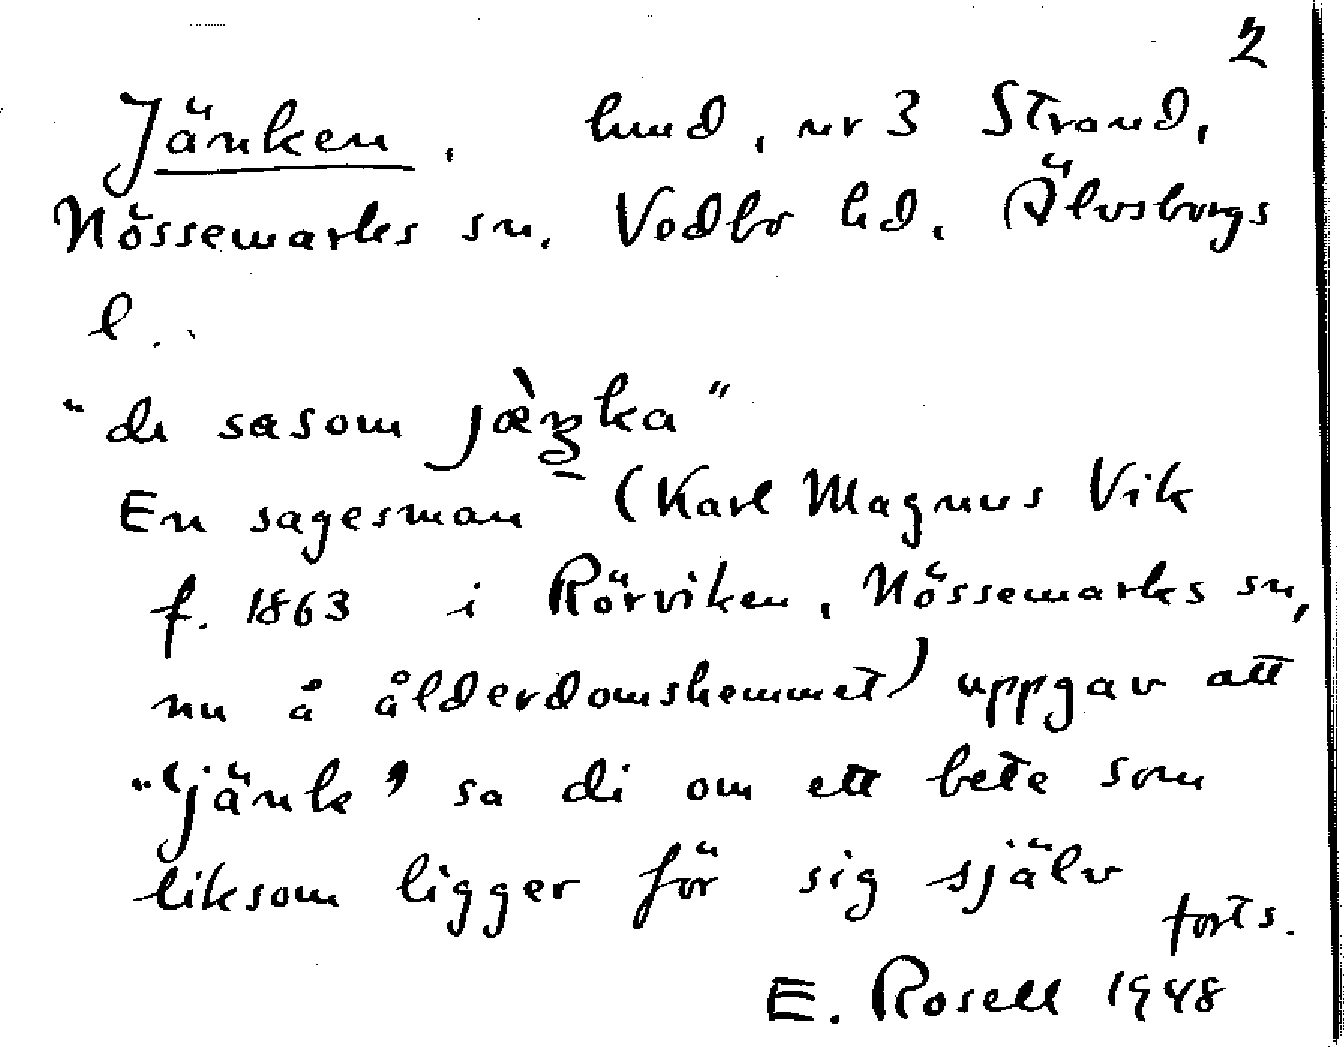 2
Jänken, lund, nr 3 Strand,
Nössemarks sn. Vedbo hd. Älvsborgs
l.
"de sasom jæ̀ŋka"
En sagesman (Karl Magnus Vik
f. 1863 i Rörviken, Nössemarks sn,
nu å ålderdomshemmet) uppgav att
"'jänk' sa di om ett bete som
liksom ligger för sig själv
forts.
E. Rosell 1948